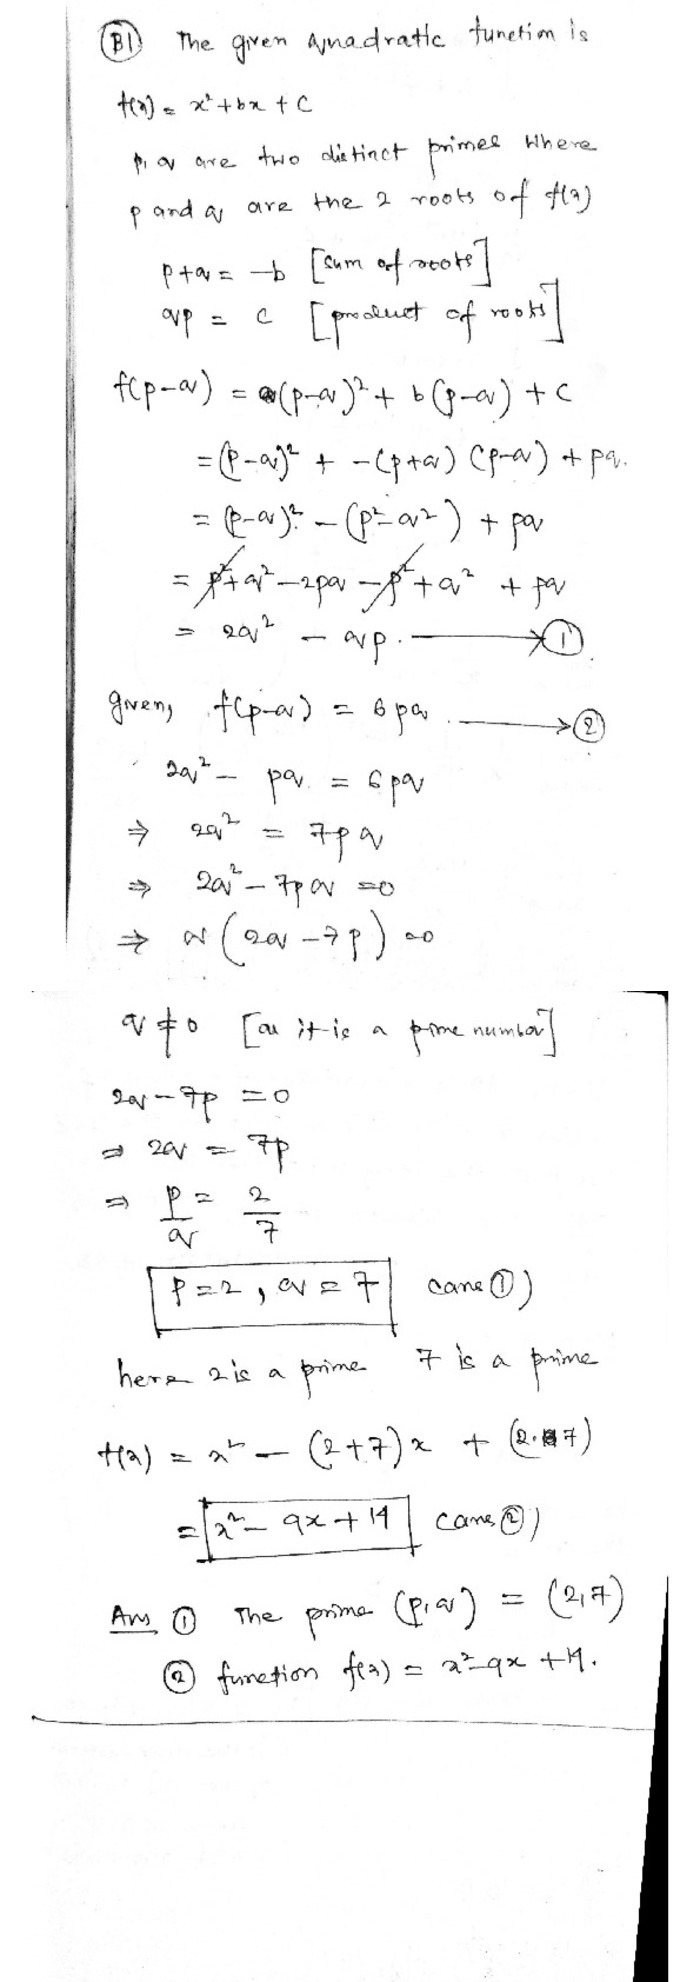 B1 The given quadratic function is
f(x) = x² + bx + c
p, q are two distinct primes where
p and q are the 2 roots of f(x)
p+q = -b [sum of roots]
qp = c [product of roots]
f(p-q) = (p-q)² + b(p-q) + c
= (p-q)² + -(p+q) (p-q) + pq.
= (p-q)² - (p²-q²) + pq
= p²+q²-2pq-p²+q² + pq
= 2q² - qp. → ①
given, f(p-q) = 6pq → ②
2q² - pq = 6pq
⇒ 2q² = 7pq
⇒ 2q² - 7pq = 0
⇒ q(2q-7p) = 0
q ≠ 0 [as it is a prime number]
2q - 7p = 0
⇒ 2q = 7p
⇒ p/q = 2/7
p=2, q=7 case ①)
here 2 is a prime 7 is a prime
f(x) = x² - (2+7)x + (2.7)
= x² - 9x + 14 case ②)
Ans ① The prime (p,q) = (2,7)
② function f(x) = x²-9x+14.